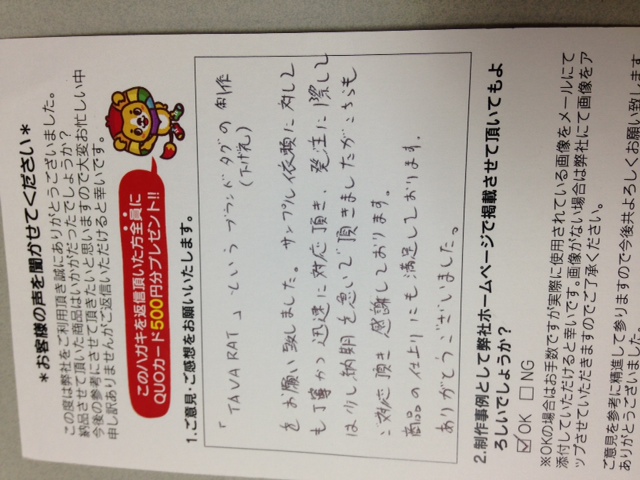 ＊お客様の声を聞かせてください＊
この度は弊社をご利用頂き誠にありがとうございました。
納品させて頂いた商品はいかがだったでしょうか？
今後の参考にさせて頂きたいと思いますので大変お忙しい中
申し訳ありませんがご返信いただけると幸いです。
このハガキを返信頂いた方全員に
QUOカード500円分プレゼント!!
1.ご意見・ご感想をお願いいたします。
「TAVARAT」というブランドタグの制作
(下げ札)
をお願い致しました。サンプル依頼に対して
も丁寧かつ迅速に対応頂き、発注に際して
は少し納期を急いで頂きましたがこちらも
ご対応頂き感謝しております。
商品の仕上りにも満足しております。
ありがとうございました。
2.制作事例として弊社ホームページで掲載させて頂いてもよ
ろしいでしょうか？
☑OK □NG
※OKの場合はお手数ですが実際に使用されている画像をメールにて
添付していただけると幸いです。画像がない場合は弊社にて画像をア
ップさせていただきますのでご了承ください。
ご意見を参考に精進して参りますので今後共よろしくお願い致します
ありがとうございました。